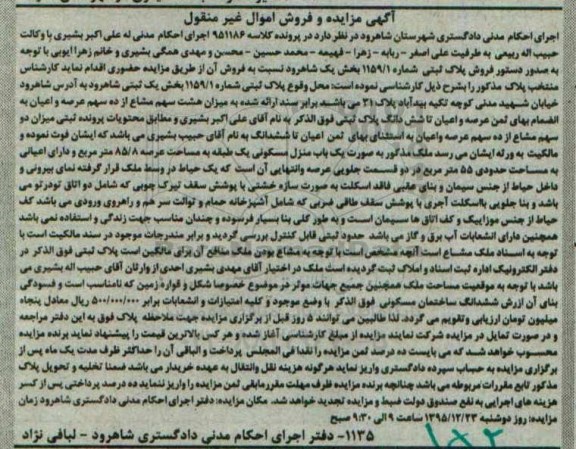 آگهی مزایده و فروش اموال غیر منقول
اجرای احکام مدنی دادگستری شهرستان شاهرود در نظر دارد در پرونده کلاسه ۹۵۱۱۸۶ اجرای احکام مدنی له علی اکبر بشیری با وکالت
حبیب اله ربیعی به طرفیت علی اصغر - ربابه - زهرا - فهیمه - محمد حسین - محسن و مهدی همگی بشیری و خانم زهرا ایوبی با توجه
به صدور دستور فروش پلاک ثبتی شماره ۱۱۵۹/۱ بخش یک شاهرود نسبت به فروش آن از طریق مزایده حضوری اقدام نماید کارشناس
منتخب پلاک مذکور را بشرح ذیل کارشناسی نموده است: محل وقوع پلاک ثبتی شماره ۱۱۵۹/۱ بخش یک ثبتی شاهرود به آدرس شاهرود
خیابان شهید مدنی کوچه تکیه بیدآباد پلاک ۳۱ می باشد برابر سند ارائه شده به میزان هشت سهم مشاع از ده سهم عرصه و اعیان به
انضمام بهای ثمن عرصه و اعیان تا شش دانگ پلاک ثبتی فوق الذکر به نام آقای علی اکبر بشیری و مطابق محتویات پرونده ثبتی میزان دو
سهم مشاع از ده سهم عرصه واعیان به استثنای بهای ثمن اعیان تا ششدانگ به نام آقای حبیب بشیری می باشد که ایشان فوت نموده و
مالکیت به ورثه ایشان می رسد ملک مذکور به صورت یک باب منزل مسکونی یک طبقه به مساحت عرصه ۸۵/۸ متر مربع و دارای اعیانی
به مساحت حدودی ۵۵ متر مربع در دو قسمت جلویی عرصه وانتهایی آن است که یک حیاط در وسط ملک قرار گرفته نمای بیرونی و
داخل حیاط از جنس سیمان و بنای عقبی فاقد اسکلت به صورت سازه خشتی با پوشش سقف تیرک چوبی که شامل دو اتاق تودرتو می
باشد و بنا جلویی بااسکلت آجری با پوشش سقف طاقی ضربی که شامل آشپزخانه حمام و توالت سر هم و راهروی ورودی می باشد کف
حیاط از جنس موزاییک و کف اتاق ها سیمان است و به طور کلی بنا بسیار فرسوده و چندان مناسب جهت زندگی و استفاده نمی باشد
همچنین دارای انشعابات آب برق و گاز می باشد حدود ثبتی قابل کنترل بررسی گردید و برابر مندرجات موجود در سند مالکیت است با
توجه به اسناد ملک مشاع است آنچه مشخص است با توجه به مشاع بودن ملک منافع آن برای مالکین است پلاک ثبتی فوق الذکر در
دفتر الکترونیک اداره ثبت اسناد و املاک ثبت گردیده است ملک در اختیار آقای مهدی بشیری احدی از وارثان آقای حبیب اله بشیری می
باشد با توجه به موقعیت مساحت ملک همچنین جمیع جهات موثر در موضوع خصوصا شکل و قواره زمین که نامناسب است و فسودگی
بنای آن ارزش ششدانگ ساختمان مسکونی فوق الذکر با وضع موجود و کلیه امتیازات و انشعابات برابر ۵۰۰/۰۰۰/۰۰۰ ریال معادل پنجاه
میلیون تومان ارزیابی وتقویم می گردد. لذا طالبین می توانند ۵ روز قبل از برگزاری مزایده جهت ملاحظه پلاک فوق به این دفتر مراجعه
و در صورت تمایل در مزایده شرکت نمایند مزایده از مبلغ کارشناسی آغاز شده و هر کس بالاترین قیمت را پیشنهاد نماید برنده مزایده
محسوب خواهد شد که می بایست ده درصد ثمن مزایده را نقدا فی المجلس پرداخت و الباقی آن را حداکثر ظرف مدت یک ماه پس از
برگزاری مزایده به حساب سپرده دادگستری واریز نماید هرگونه هزینه نقل وانتقال به عهده خریدار می باشد ضمنا تخلیه و تحویل پلاک
مذکور تابع مقررات مربوطه می باشد چنانچه برنده مزایده ظرف مهلت مقرر مابقی ثمن مزایده را واریز ننماید ده درصد پرداختی پس از کسر
هزینه های اجرایی به نفع صندوق دولت ضبط و مزایده تجدید خواهد شد. مکان مزایده: دفتر اجرای احکام مدنی دادگستری شاهرود زمان
مزایده: روز دوشنبه ۱۳۹۵/۱۲/۲۳ ساعت ۹ الی ۹:۳۰ صبح
۱۱۳۵- دفتر اجرای احکام مدنی دادگستری شاهرود - لبافی نژاد